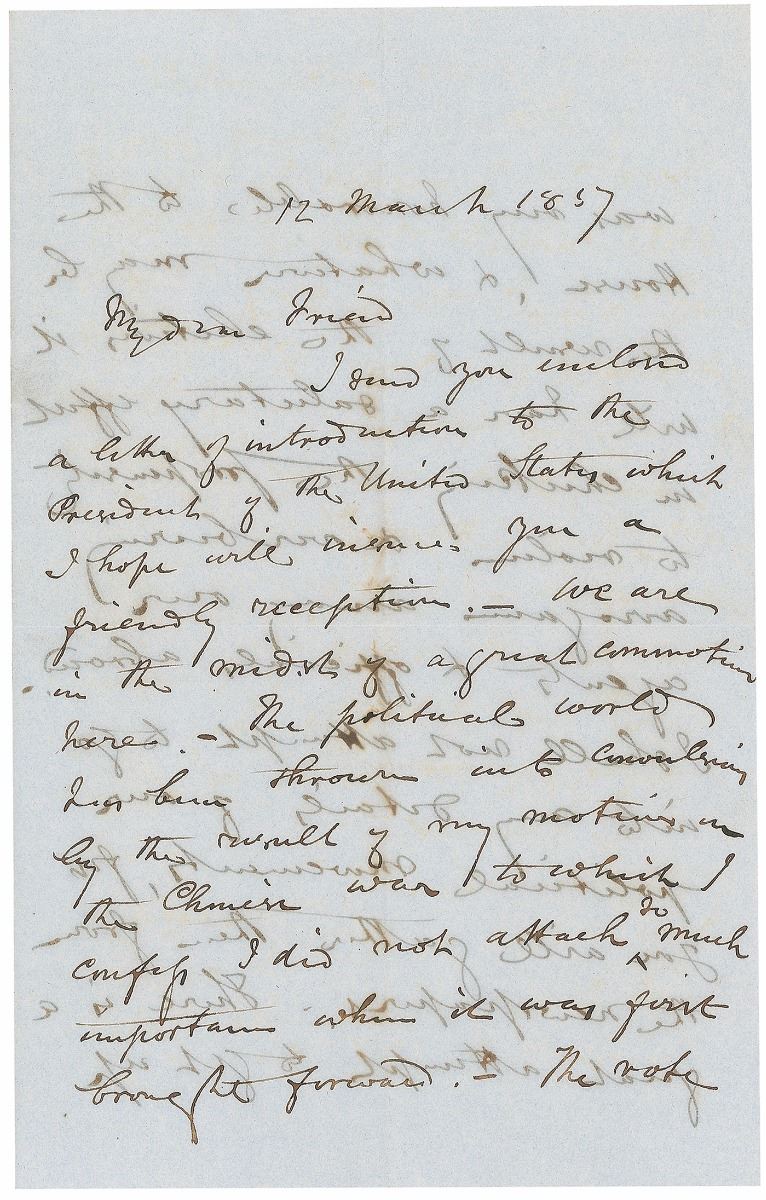 12 March 1857
My dear Friend
I send you enclosed
a letter of introduction to the
President of the United States which
I hope will insure you a
friendly reception. — We are
in the midst of a great commotion
here. — The political world
has been thrown into convulsions
by the result of my motion on
the Chinese war to which I
confess I did not attach so much
importance when it was first
brought forward. — The vote